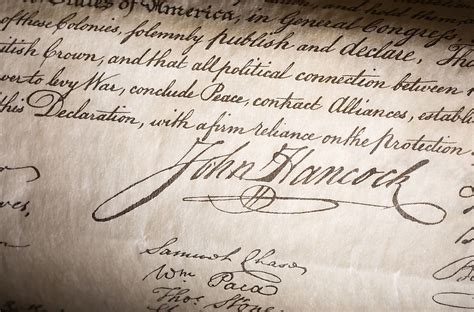 States of America, in General Congress,
of these Colonies, solemnly publish and declare, Tha
itish Crown, and that all political connection between
ver to levy War, conclude Peace, contract Alliances, establi
this Declaration, with a firm reliance on the protection
John Hancock
Samuel Chase
Wm Paca
Thos. Stone